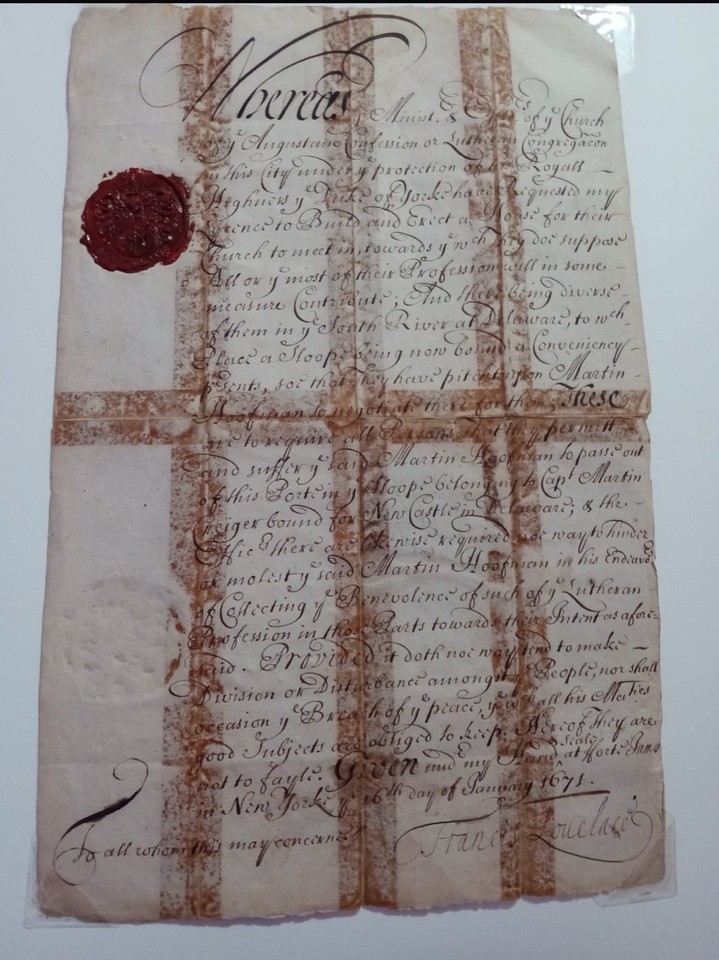 Whereas
yͤ Minist. & of yͤ Church
of yͤ Augustane Confession or Lutheran Congregacon
in this City under yͤ protection of his Royall
Highness yͤ Duke of Yorke have Requested my
Lycence to Build and Erect a House for their
Church to meet in, towards yͤ wᶜʰ They doe suppose
All or yͤ most of their Profession will in some
measure Contribute; And there being diverse
of them in yͤ South River at Delaware, to wᶜʰ
Place a Sloope being now bound a Conveniency
p'sents, soe that they have pitcht upon Martin
Hoofman to negotiate there for them; These
are to require all Persons that they permitt
and suffer yͤ said Martin Hoofman to passe out
of this Porte in yͤ Sloope belonging to Capᵗ Martin
Creiger bound for New Castle in Delaware; & the
Officʳˢ there are likewise required noe way to hinder
or molest yͤ said Martin Hoofman in his Endeavoʳ
of Collecting yͤ Benevolence of such of yͤ Lutheran
Profession in those Parts towards their Intent as afore-
said. Provided it doth noe way tend to make
Division or Disturbance amongst yͤ People, nor shall
occasion yͤ Breach of yͤ peace, yͭ all his Maᵗⁱᵉˢ
good Subjects are obliged to keep. Hereof They are
not to fayle. Given undʳ my Hand & Seale at Forte James
in New Yorke yͤ 16ᵗʰ day of January 1671.
To all whom this may concerne
Francis Lovelace